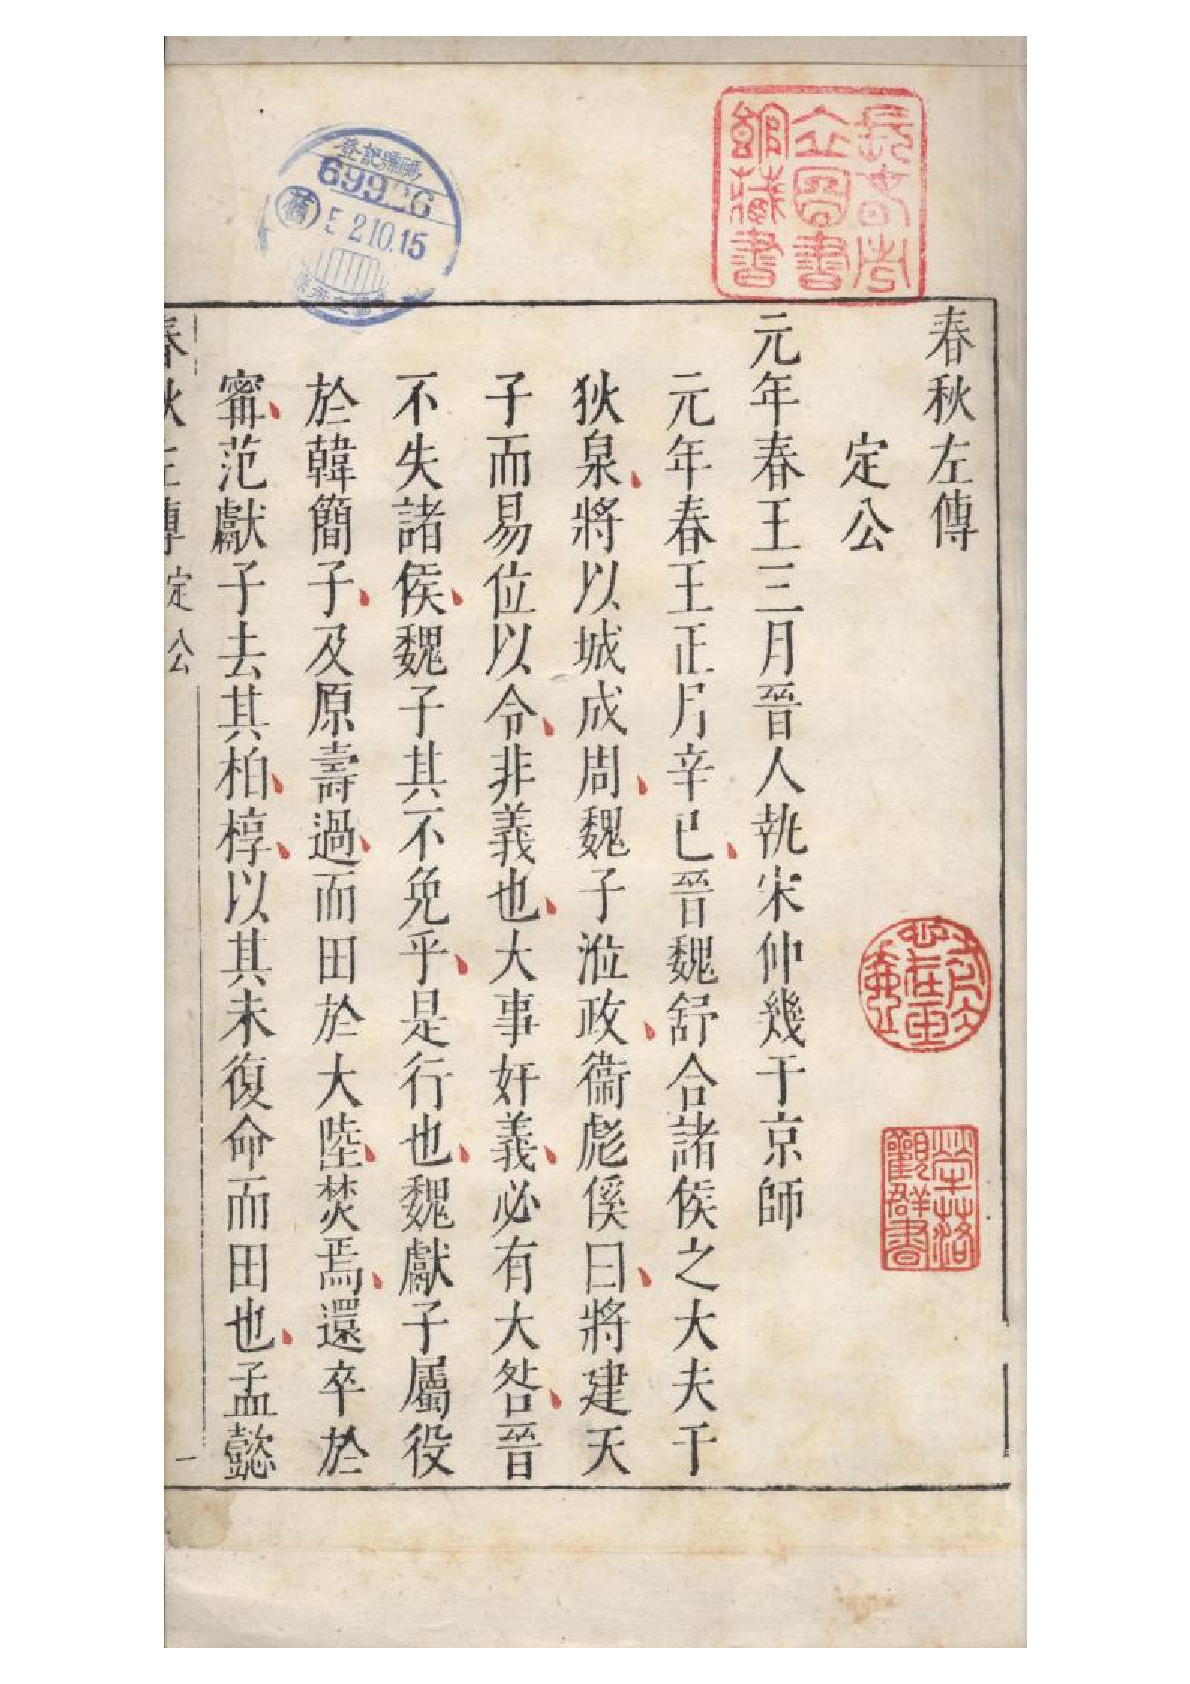 春秋左傳
定公
元年春王三月晉人執宋仲幾于京師
元年春王正月辛巳晉魏舒合諸侯之大夫于
狄泉將以城成周魏子涖政衞彪傒曰將建天
子而易位以令非義也大事奸義必有大咎晉
不失諸侯魏子其不免乎是行也魏獻子屬役
於韓簡子及原壽過而田於大陸焚焉還卒於
甯范獻子去其柏椁以其未復命而田也孟懿
春秋左傳 定公 一
長春市
立圖書
館藏書
登記號碼
69926
舊 52.10.15
觀群書